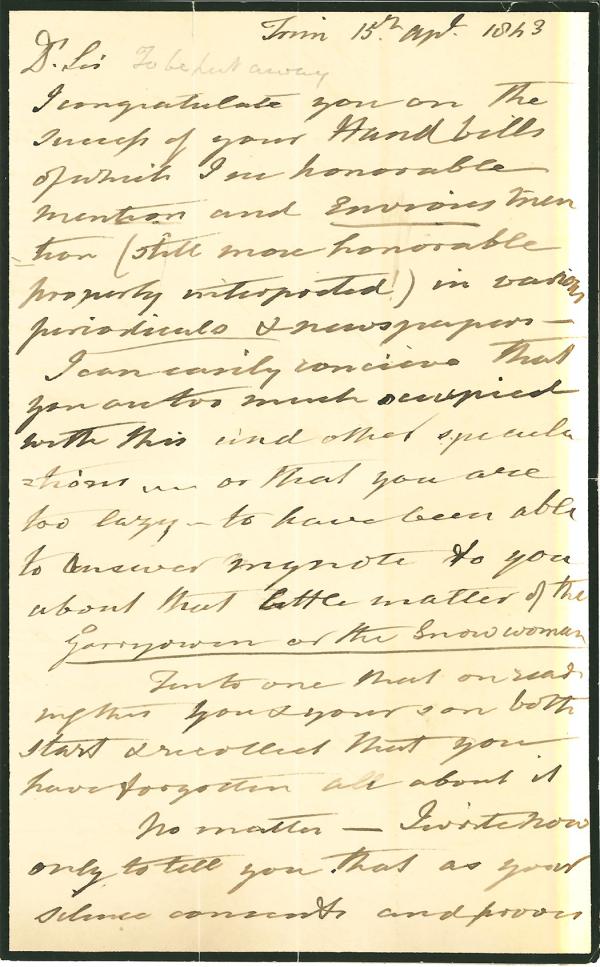 Trim 15th Apl. 1843
Dr. Sir To be put away
I congratulate you on the
success of your Hand bills
of which I see honorable
mention and Envious men
tion (still more honorable
properly interpreted!) in various
periodicals & newspapers —
I can easily concieve that
you are too much occupied
with this and other specula
=tions — or that you are
too lazy — to have been able
to answer my note to you
about that little matter of the
Garryowen or the Snow woman
Ten to one that on read
ing this you & your son both
start & recollect that you
have forgotten all about it
No matter — I write now
only to tell you that as your
silence consents and proves